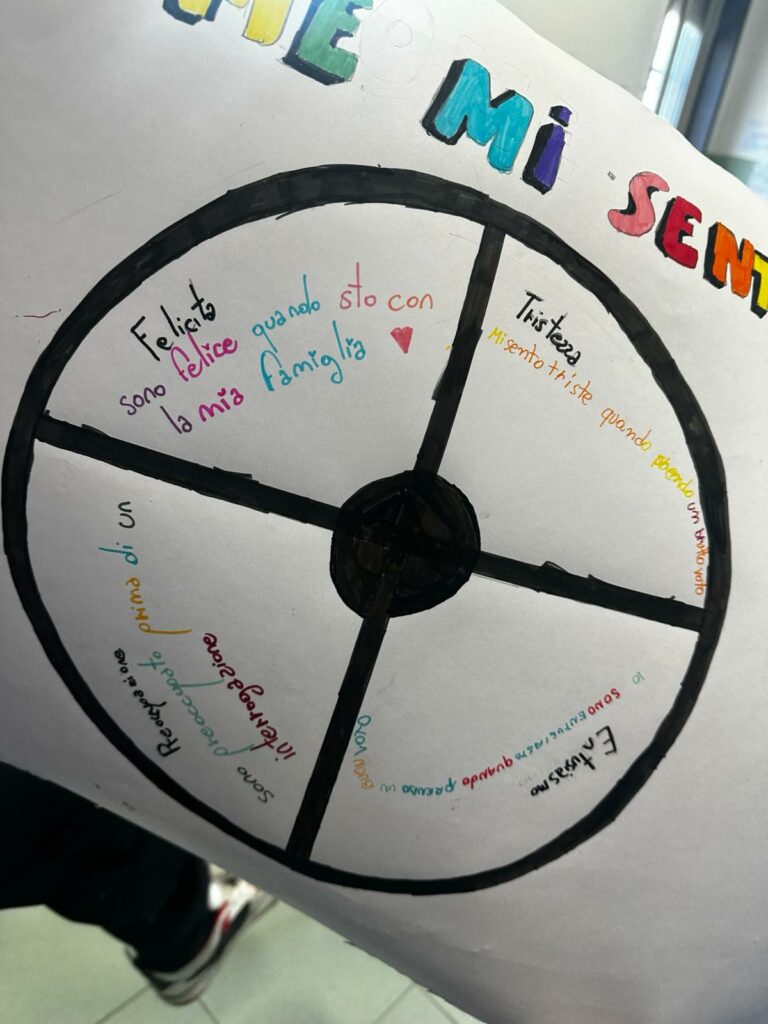 ME MI SENT
Felicità
sono felice quando sto con
la mia famiglia
Tristezza
Mi sento triste quando prendo un brutto voto
Entusiasmo
IO SONO ENTUSIASTO QUANDO PRENDO UN BUON VOTO
sono preoccupato prima di un
interrogazione